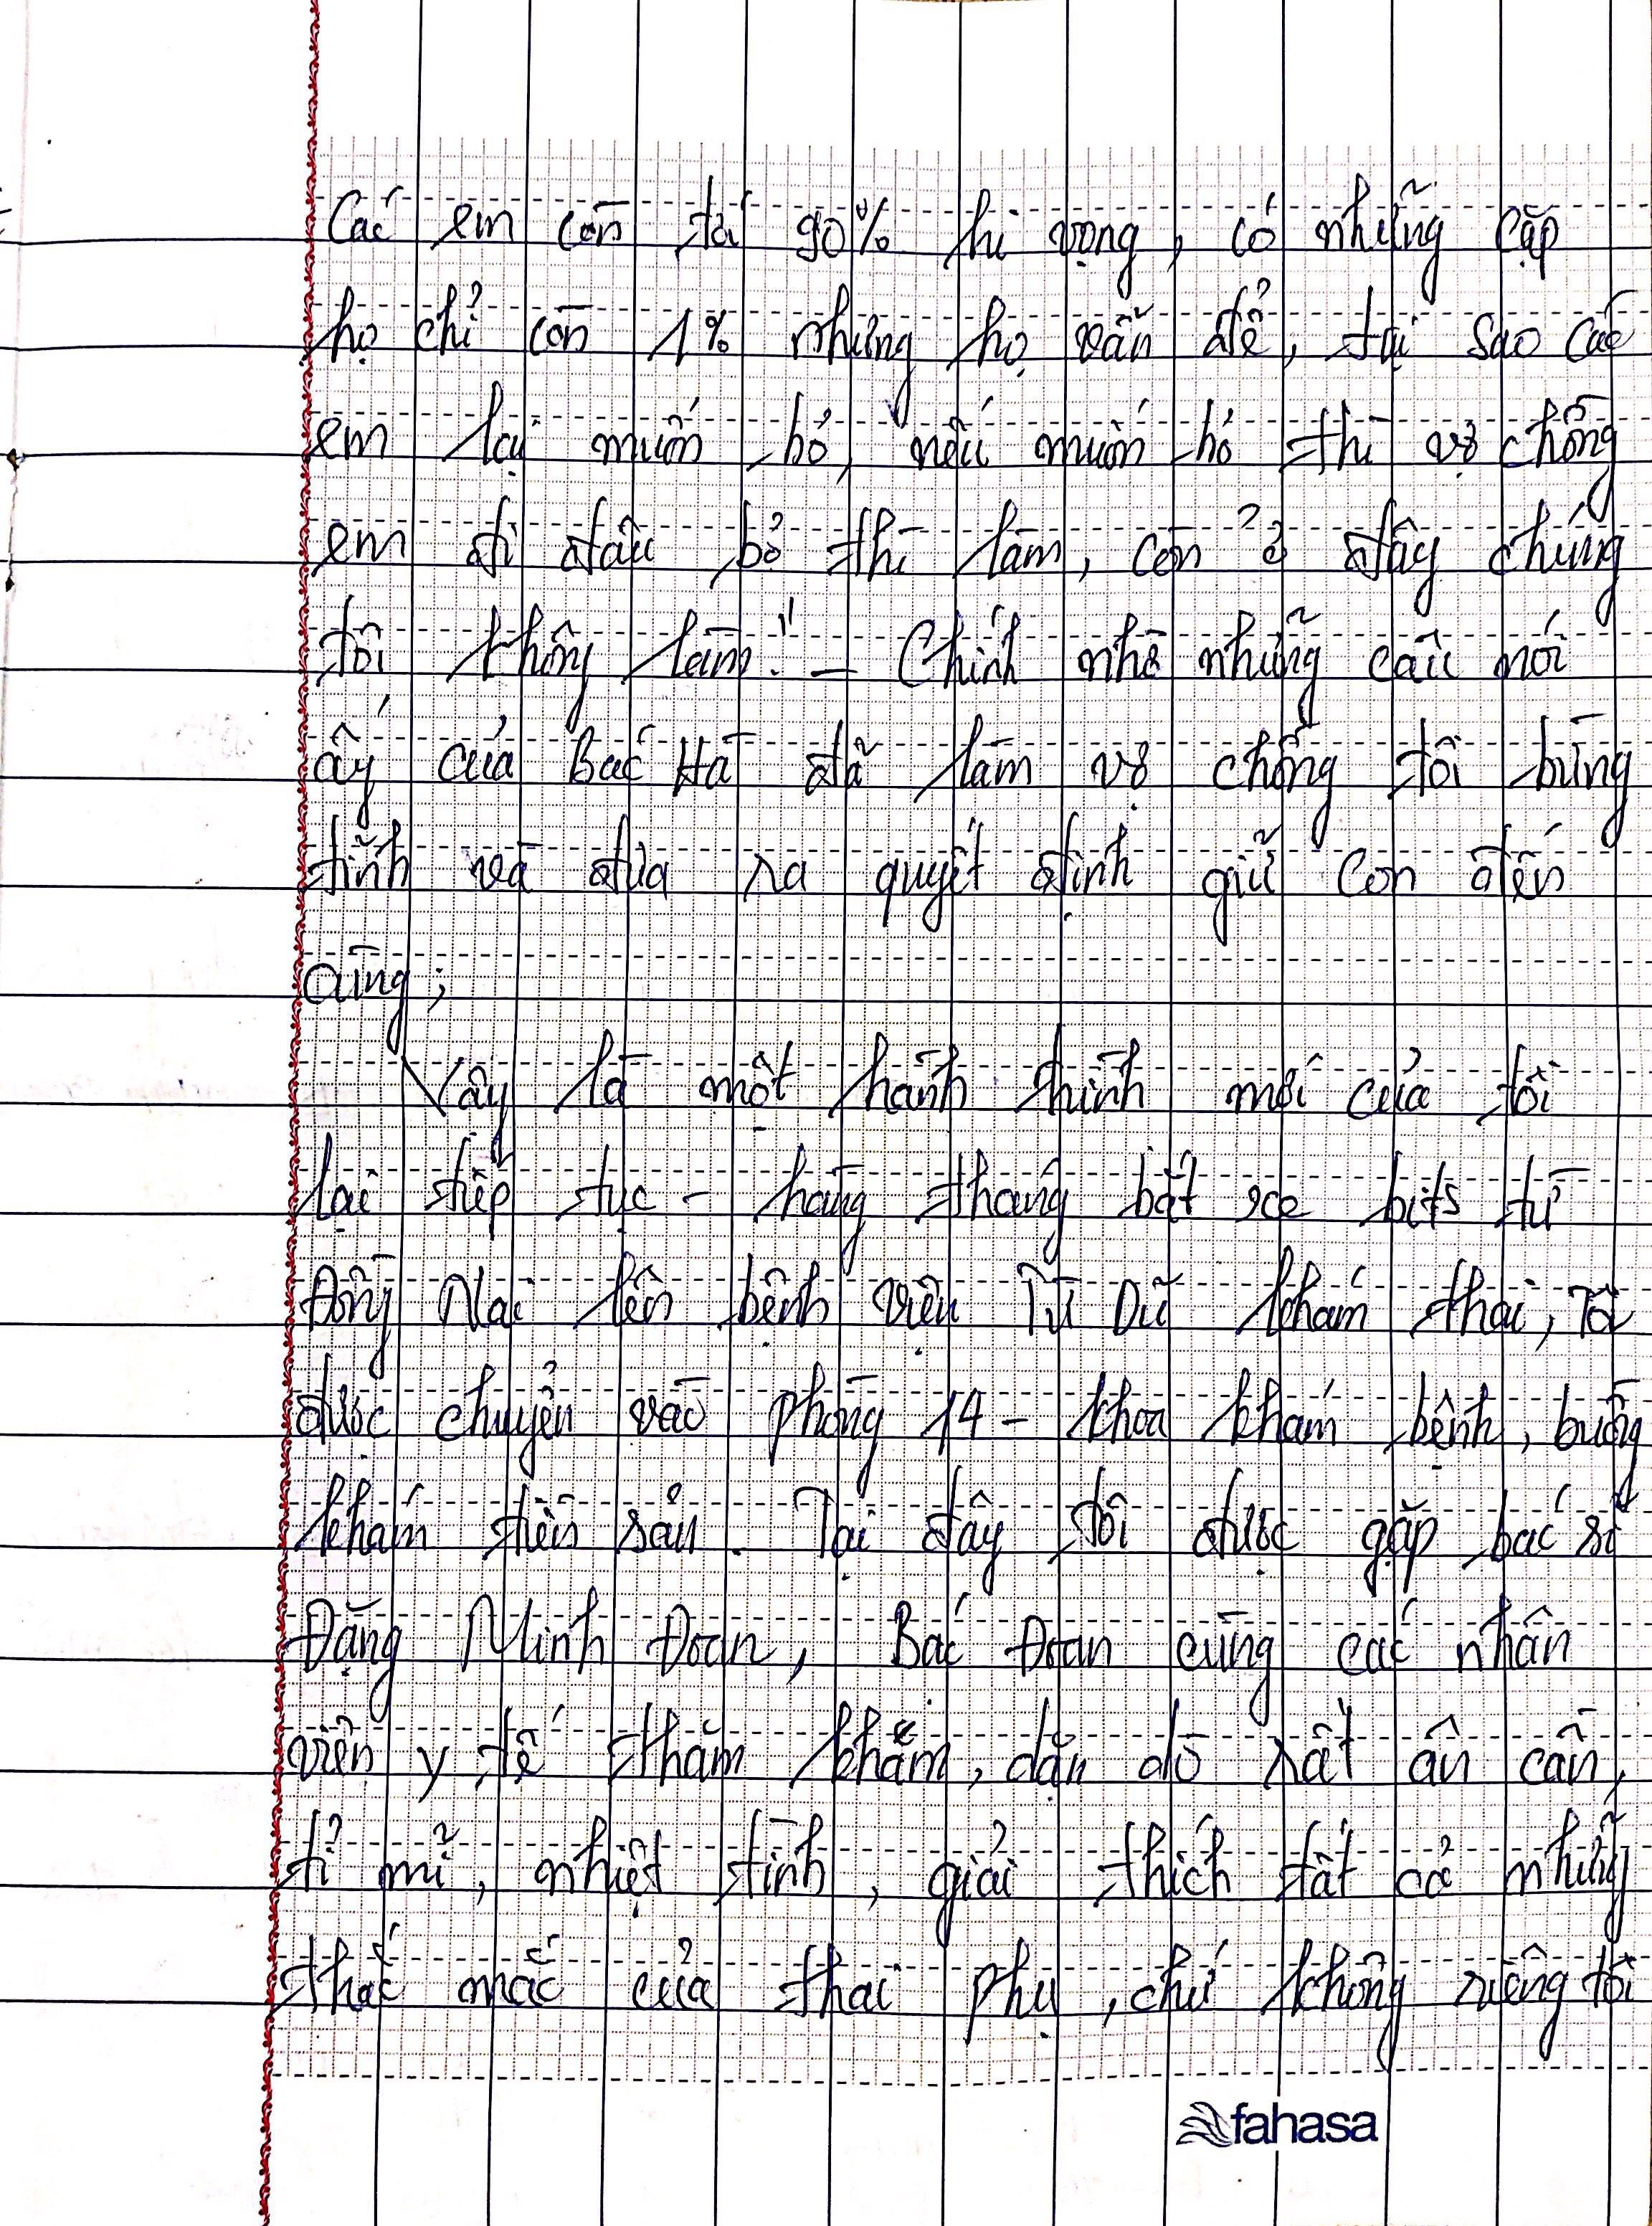 Các em còn tới 90% hi vọng, có những cặp
họ chỉ còn 1% nhưng họ vẫn để, tại sao các
em lại muốn bỏ, nếu muốn bỏ thì vợ chồng
em đi đâu bỏ thì làm, còn ở đây chúng
tôi không làm!" - Chính nhờ những câu nói
ấy của Bác Hà đã làm vợ chồng tôi bừng
tỉnh và đưa ra quyết định giữ con đến
cùng;
Vậy là một hành trình mới của tôi
lại tiếp tục - hàng tháng bắt xe buýt từ
Đồng Nai lên bệnh viện Từ Dũ khám thai, Tôi
được chuyển vào phòng 14 - khoa khám bệnh, buồng
khám tiền sản. Tại đây tôi được gặp bác sĩ
Đặng Minh Đoan, Bác Đoan cùng các nhân
viên y tế thăm khám, dặn dò rất ân cần,
tỉ mỉ, nhiệt tình, giải thích tất cả những
thắc mắc của thai phụ, chứ không riêng tôi
fahasa